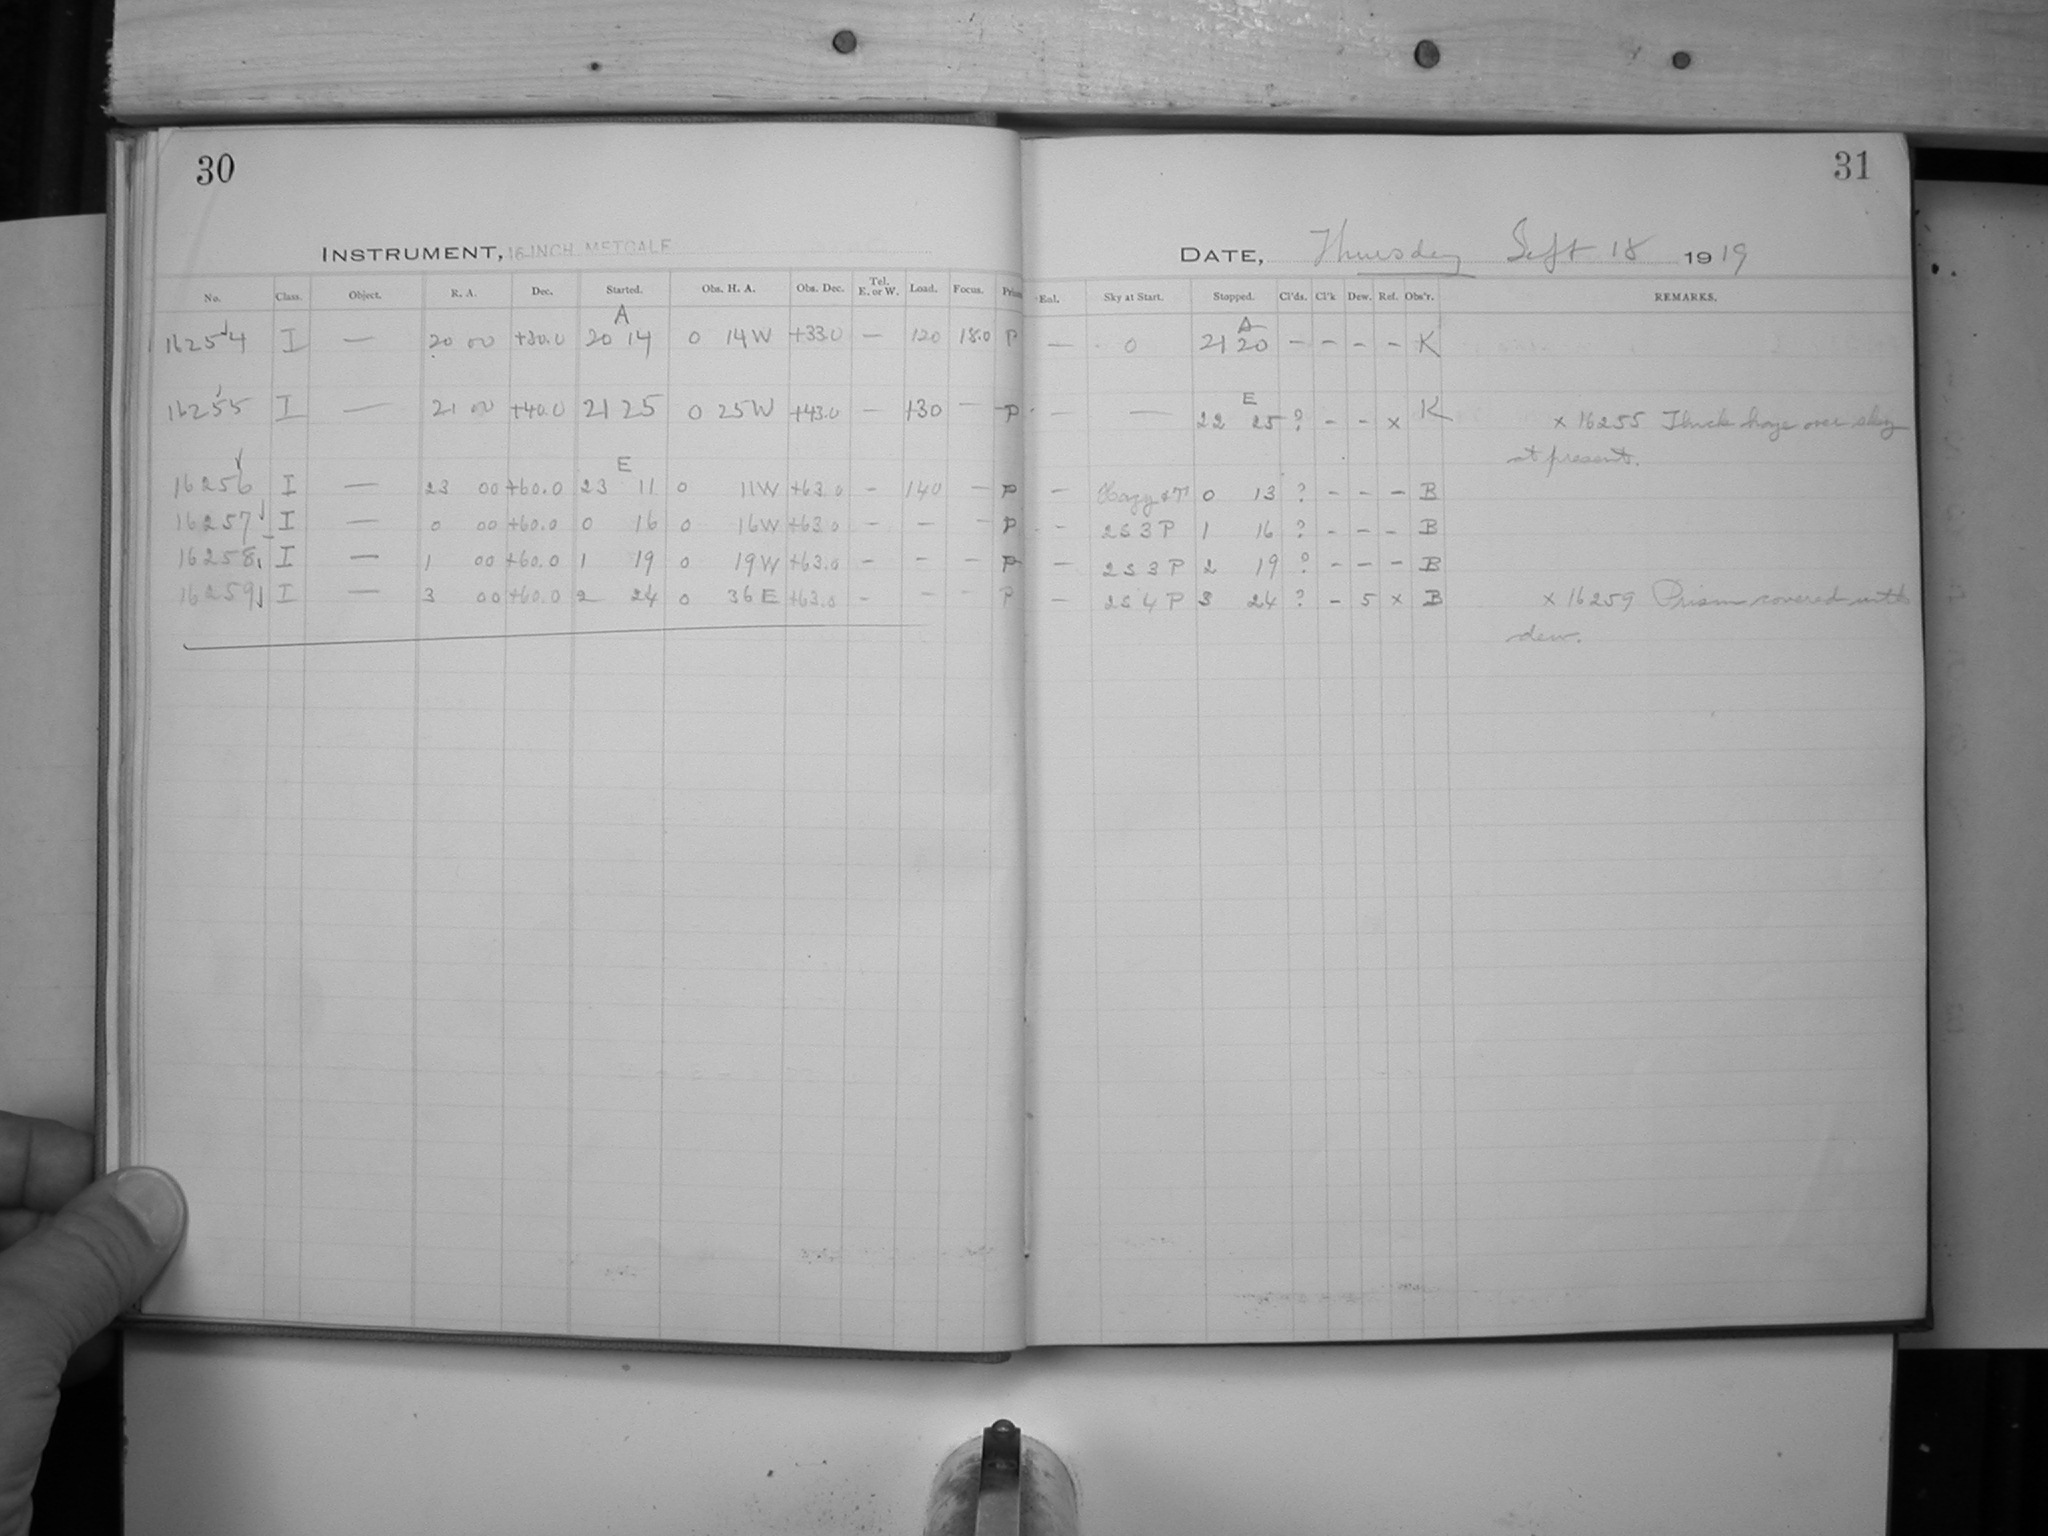 30
INSTRUMENT, 16-INCH METCALF
No. Class. Object. R. A. Dec. Started. Obs. H. A. Obs. Dec. Tel. E. or W. Load. Focus. Prism
A
16254 I — 20 00 +30.0 20 14 0 14 W +33.0 — 120 18.0 P
16255 I — 21 00 +40.0 21 25 0 25 W +43.0 — +30 — P
E
16256 I — 23 00 +60.0 23 11 0 11 W +63.0 - 140 — P
16257 I — 0 00 +60.0 0 16 0 16 W +63.0 - - - P
16258 I — 1 00 +60.0 1 19 0 19 W +63.0 - - - P
16259 I — 3 00 +60.0 2 24 0 36 E +63.0 - - - P
31
DATE, Thursday Sept 18 1919
Enl. Sky at Start. Stopped. Cl'ds. Cl'k Dew. Ref. Obs'r. REMARKS.
A
— 0 21 20 - - - - K
E
— — 22 25 ? - - x K x 16255 Thick haze over sky
at present.
— Hazy 0 13 ? - - - B
- 2 S 3 P 1 16 ? - - - B
— 2 S 3 P 2 19 ? - - - B
— 2 S 4 P 3 24 ? - 5 x B x 16259 Prism covered with
dew.